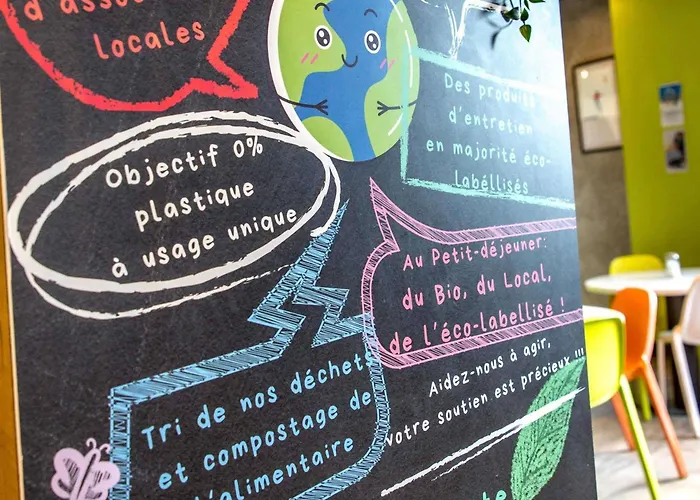 locales
Des produits
d'entretien
en majorité éco-
labéllisés
Objectif 0%
plastique
à usage unique
Au Petit-déjeuner:
du Bio, du Local,
de l'éco-labellisé !
Aidez-nous à agir,
votre soutien est précieux !!!
Tri de nos déchets
et compostage de
l'alimentaire